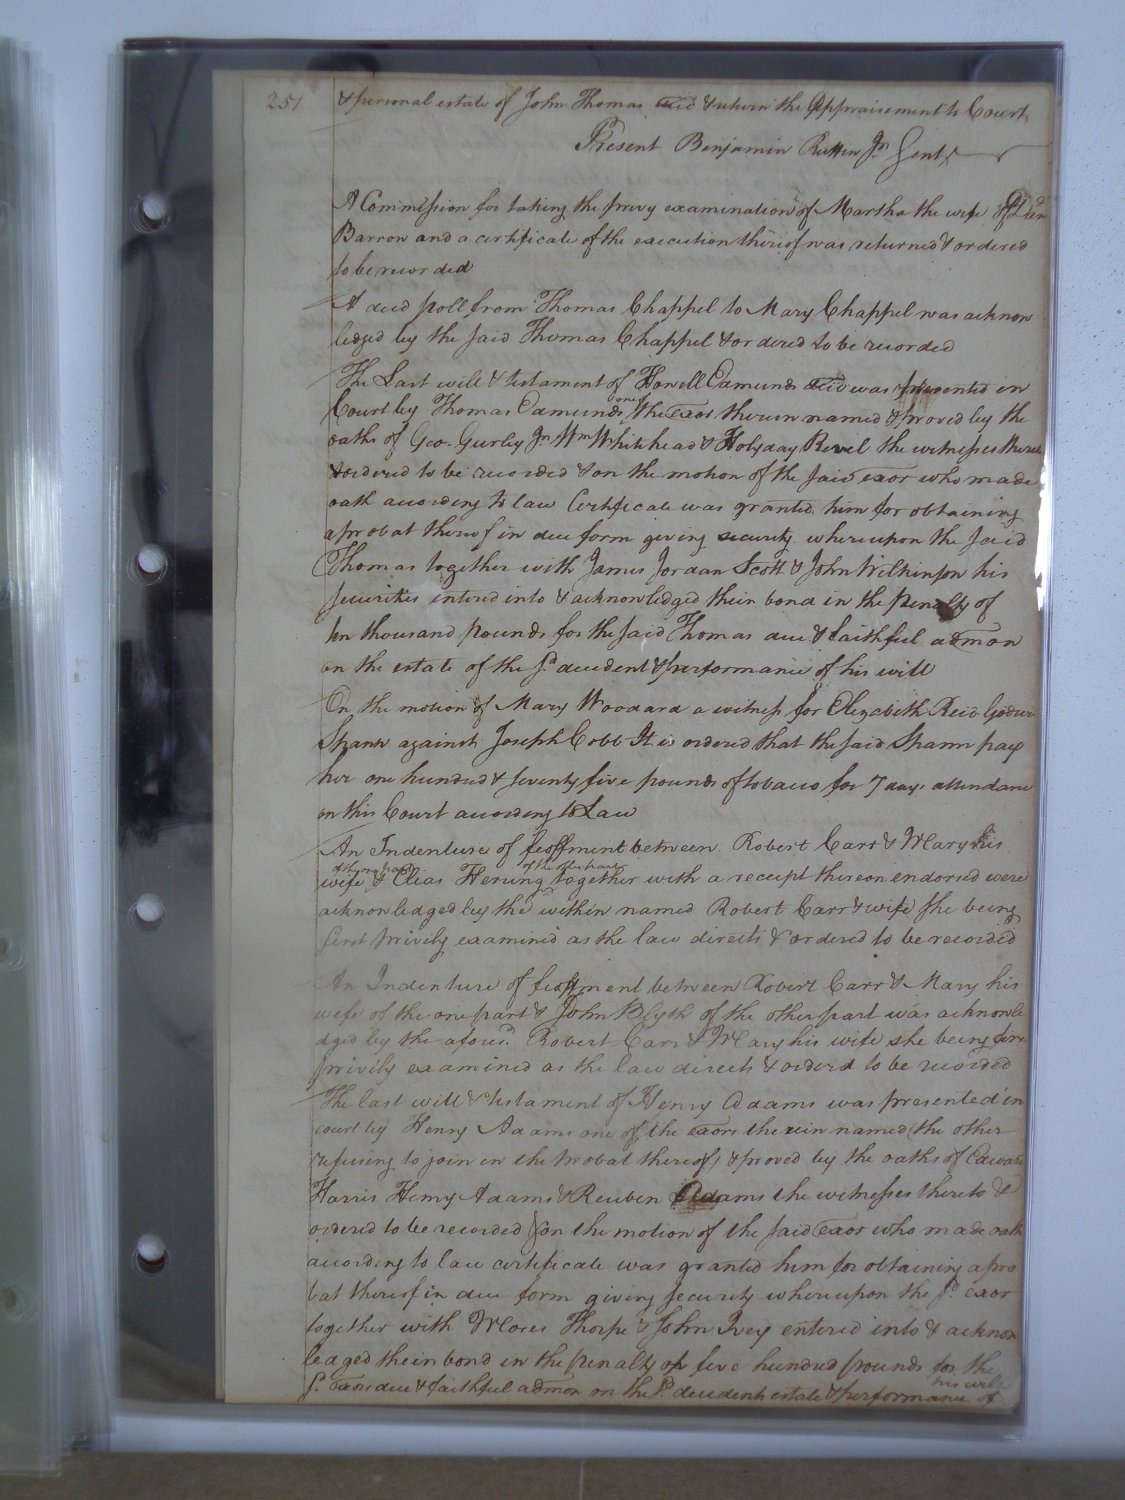 251
& personal estate of John Thomas decd & return the Appraisement to Court
Present Benjamin Ruffin Jr Gent
A Commission for taking the privy examination of Martha the wife of Danl
Barrow and a certificate of the execution thereof was returned & ordered
to be recorded
A deed poll from Thomas Chappel to Mary Chappel was acknow
ledged by the said Thomas Chappel & ordered to be recorded
The Last will & testament of Howell Edmunds decd was presented in
Court by Thomas Edmunds one of the exors therein named & proved by the
oaths of Geo. Gurley Jr Wm Whitehead & Holyday Revel the witnesses thereto
& ordered to be recorded & on the motion of the said exor who made
oath according to law Certificate was granted him for obtaining
a probat thereof in due form giving security whereupon the said
Thomas together with James Jordan Scott & John Wilkinson his
securities entered into & acknowledged their bond in the penalty of
ten thousand pounds for the said Thomas due & faithful admon
on the estate of the sd decedent & performance of his will
On the motion of Mary Woodard a witness for Elizabeth Reid
Spann against Joseph Cobb It is ordered that the said Spann pay
her one hundred & seventy five pounds of tobacco for 7 days attendance
on this Court according to Law
An Indenture of feoffment between Robert Carr & Mary his
wife of the one part & Elias Herring of the other part together with a receipt thereon endorsed were
acknowledged by the within named Robert Carr & wife she being
first privily examined as the law directs & ordered to be recorded
An Indenture of feoffment between Robert Carr & Mary his
wife of the one part & John Blyth of the other part was acknowle
dged by the aforesd Robert Carr & Mary his wife she being first
privily examined as the law directs & ordered to be recorded
The last will & testament of Henry Adams was presented in
court by Henry Adams one of the exors therein named (the other
refusing to join in the probat thereof) & proved by the oaths of Edward
Harris Henry Adams & Reuben Adams the witnesses thereto &
ordered to be recorded & on the motion of the said exor who made oath
according to law certificate was granted him for obtaining a pro
bat thereof in due form giving security whereupon the sd exor
together with Moses Thorpe & John Ivey entered into & acknow
ledged their bond in the penalty of five hundred pounds for the
sd exors due & faithful admon on the sd decedents estate & performance of his will